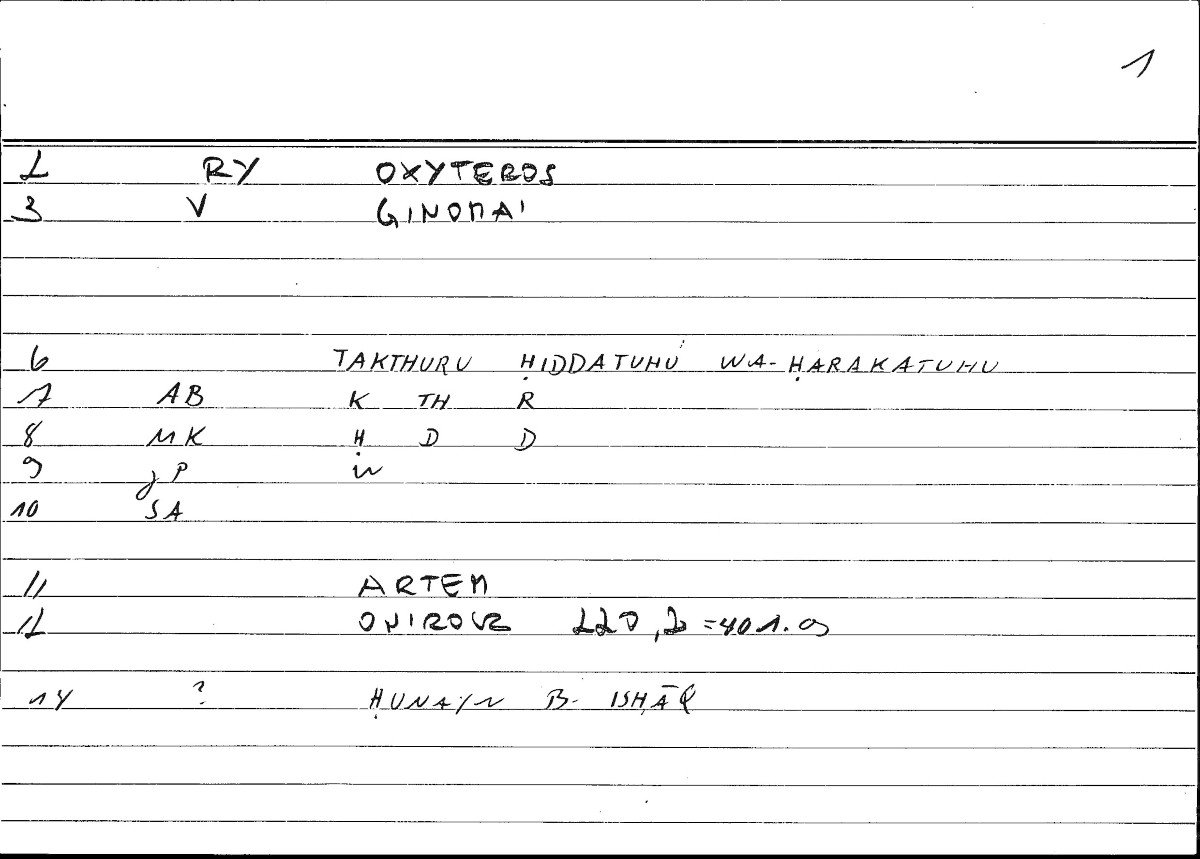 1
2 RY OXYTEROS
3 V GINOMAI
6 TAKTHURU ḤIDDATUHŪ WA-ḤARAKATUHU
7 AB K TH R
8 MK Ḥ D D
9 JP W
10 SA
11 ARTEM
12 ONIROCR 220,2 =401.9
14 ? ḤUNAYN B. ISḤĀQ